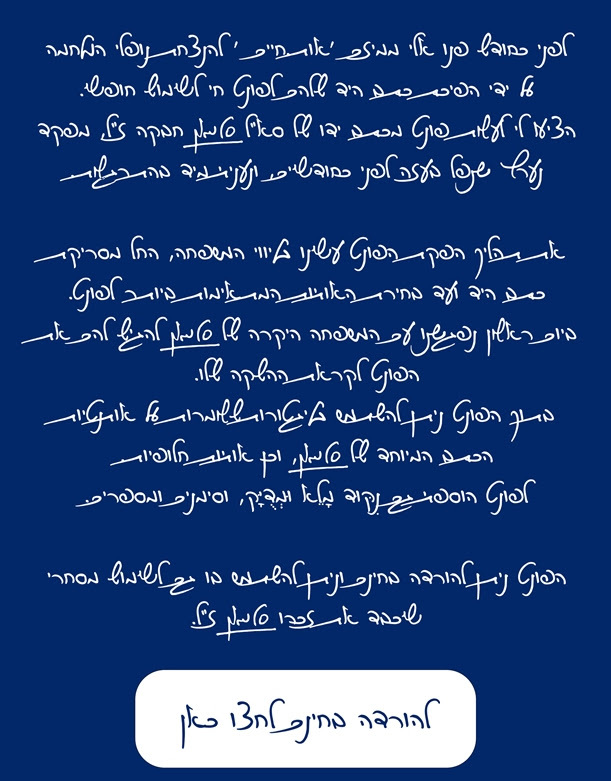 לפני כחודש פנו אלי ממיזם 'אות חיים' להנצחת נופלי המלחמה
על ידי הפיכת כתב היד שלהם לפונט חי לשימוש חופשי.
הציעו לי לעשות פונט מכתב ידו של סא״ל סלמאן חבקה ז״ל, מפקד
נערץ שנפל בעזה לפני כחודשיים ונעניתי מיד בהתרגשות
את תהליך הפקת הפונט עשינו בליווי המשפחה, החל מסריקת
כתב היד ועד בחירת האותיות המתאימות ביותר לפונט.
ביום ראשון נפגשנו עם המשפחה היקרה של סלמאן להגיש להם את
הפונט לקראת ההשקה שלו.
בתוך הפונט ניתן להשתמש בליגטורות ששומרות על אותנטיות
הכתב המיוחד של סלמאן, וכן אותיות חלופיות
לפונט הוספתי גם נִקוד מָלֵא וּמְדֻיָּק, וסימנים ומספרים.
הפונט ניתן להורדה בחינם וניתן להשתמש בו גם לשימוש מסחרי
שיכבד את זכרו סלמאן ז״ל.
להורדה בחינם לחצו כאן